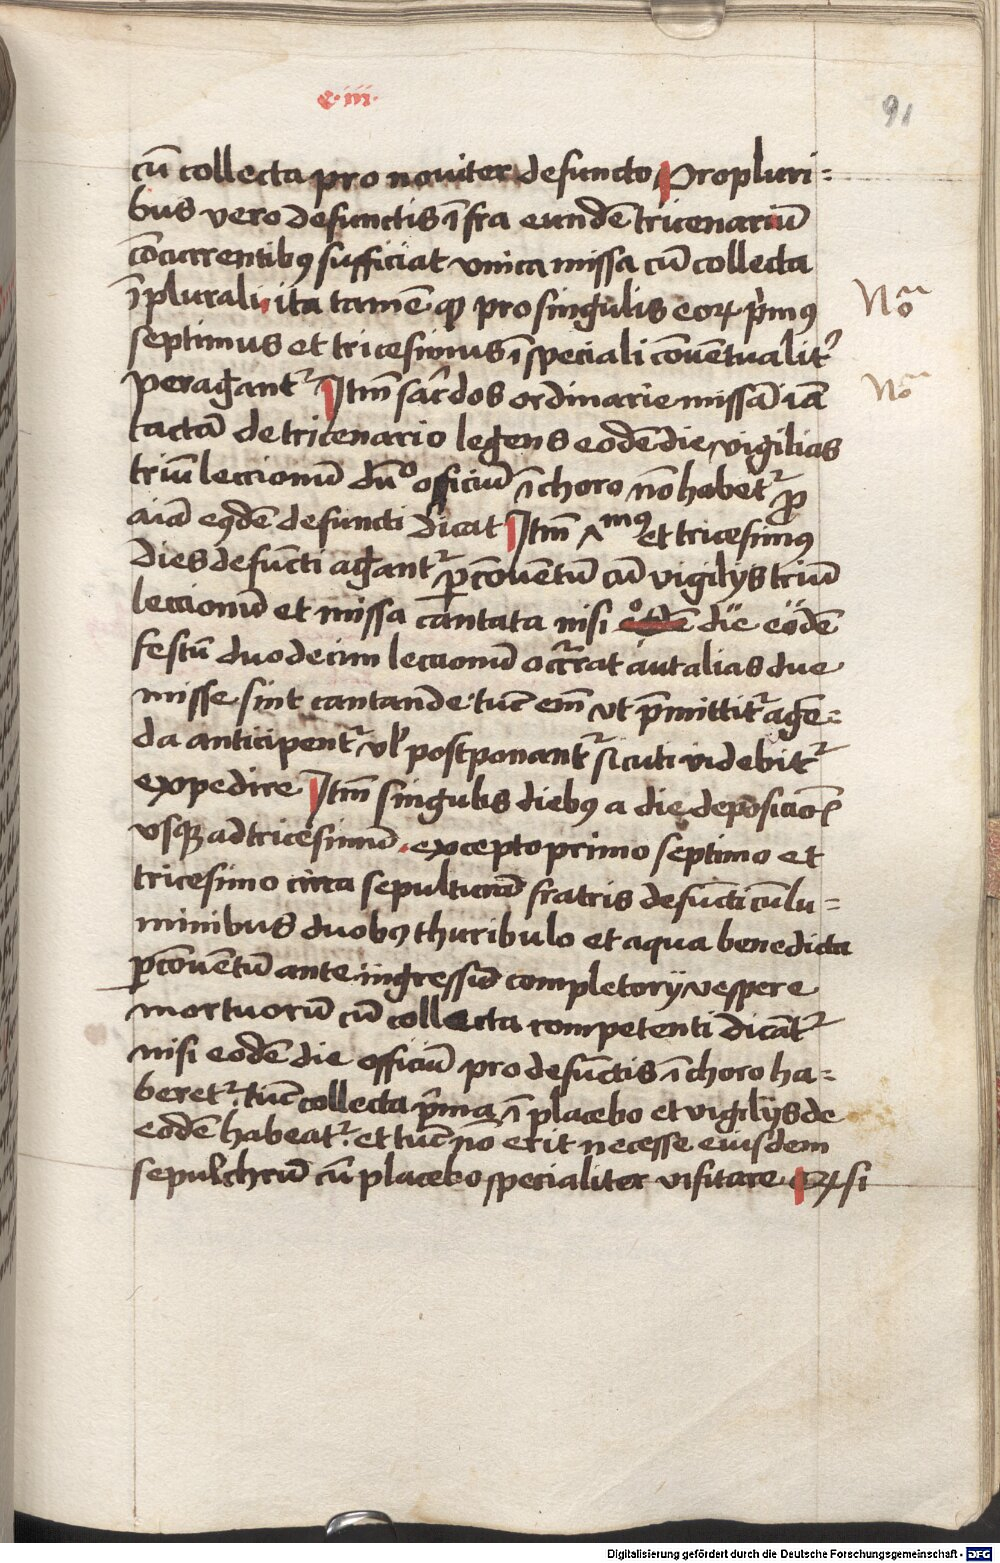 e·iii·
91
cū collecta pro noviter defuncto Propluri=
bus vero defunctis īfra eundē tricenariū
cōcurrentibꝯ sufficiat vnica missa cū collecta
ī plurali ita tamē ꝙ pro singulis eoꝝ p̄mꝯ
Nᵃo
septimus et tricesimus ī speciali cōuētualit᷑
peragant᷑ Itm̄ sac᷑dos ordinarie missā iā
Nᵃo
tactā de tricenario legens eodē die vigilias
triū leccionū dū°officiū ī choro nō habet᷑ ꝓ
aiā eꝯdē defuncti dicat Itm̄ ^mꝯ et tricesimꝯ
dies defūcti agant᷑ ꝑ cōuentū cū vigilijs triū
leccionū et missa cantata nisi die eodē
festū duodecim leccionū occ᷑rat aut alias due
misse sint cantande tūc em̄ vt p̄mittit᷑ agē=
da anticipent᷑ vl̓ postponant᷑ sicuti videbit᷑
expedire Itm̄ singulis diebꝯ a die deposiciōꝭ
vsqꝫ ad tricesimū excepto primo septimo et
tricesimo circa sepulturā fratris defūcti cū lu=
minibus duobꝯ thuribulo et aqua benedicta
ꝑ cōuentū ante ingressū completorij vespere
mortuorū cū collecta competenti dicāt᷑
nisi eodē die officiū pro defūctis ī choro ha=
beret᷑. tūc collecta p̄ma ī placebo et vigilijs de
eodē habeat᷑. et tūc nō erit necesse eiusdem
sepulchrū cū placebo specialiter visitare Qꝫ si
Digitalisierung gefördert durch die Deutsche Forschungsgemeinschaft - DFG